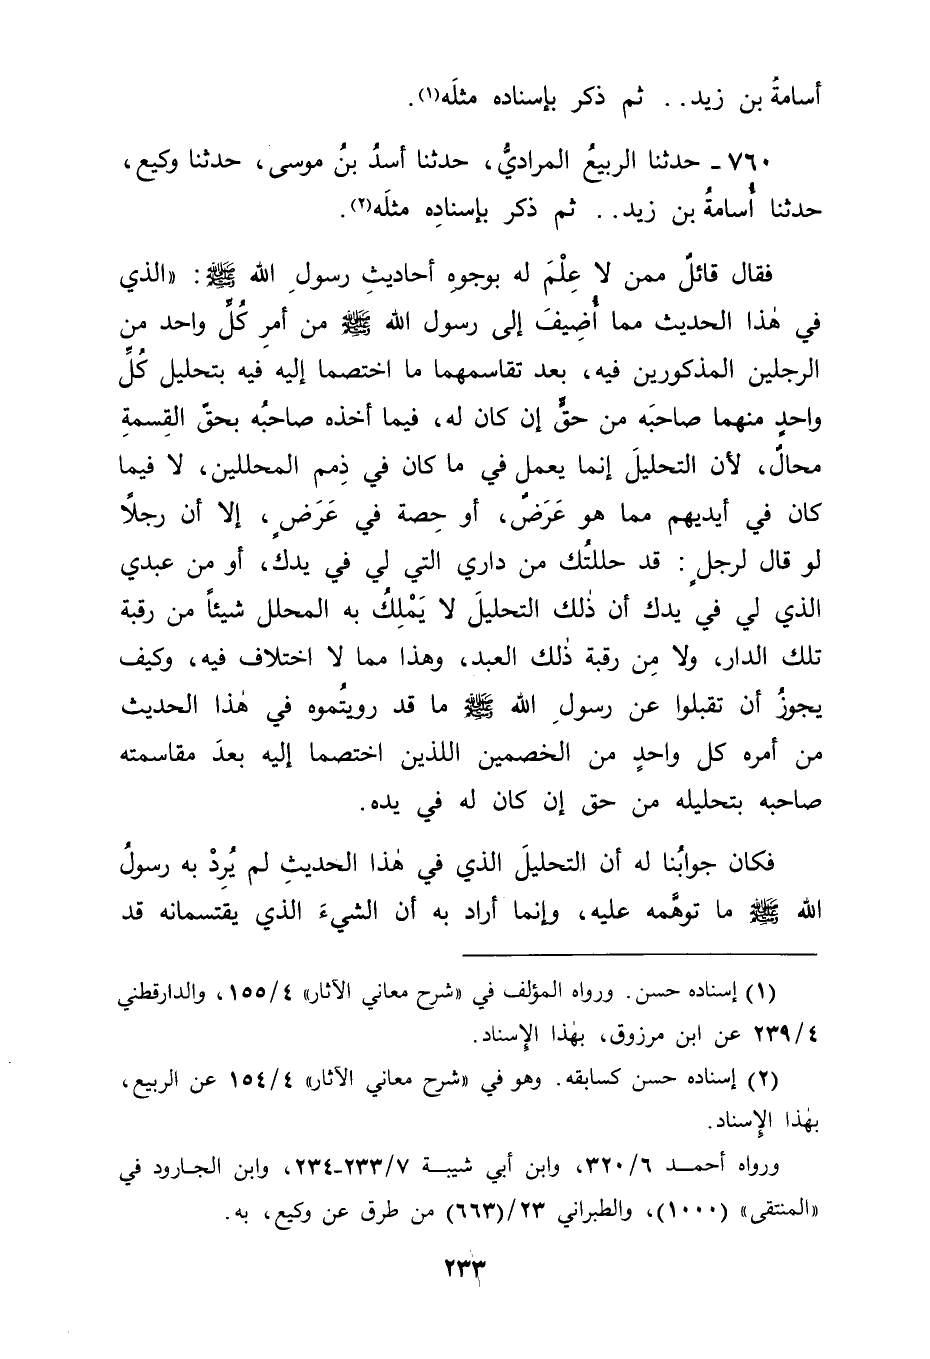 أسامةُ بن زيد.. ثم ذكر بإسناده مثلَه(١).
٧٦٠ ـ حدثنا الربيعُ المراديُّ، حدثنا أسدُ بنُ موسى، حدثنا وكيع،
حدثنا أُسامةُ بن زيد.. ثم ذكر بإسنادِه مثلَه(٢).
فقال قائلٌ ممن لا عِلْمَ له بوجوهِ أحاديثِ رسولِ الله ﷺ: «الذي
في هٰذا الحديث مما أُضِيفَ إلى رسول الله ﷺ من أمرِ كُلِّ واحد من
الرجلين المذكورين فيه، بعد تقاسمهما ما اختصما إليه فيه بتحليل كُلِّ
واحدٍ منهما صاحبَه من حقٍّ إن كان له، فيما أخذه صاحبُه بحقّ القِسمةِ
محالٌ، لأن التحليلَ إنما يعمل في ما كان في ذِمم المحللين، لا فيما
كان في أيديهم مما هو عَرَضٌ، أو حِصة في عَرَضٍ، إلا أن رجلًا
لو قال لرجلٍ: قد حللتُك من داري التي لي في يدك، أو من عبدي
الذي لي في يدك أن ذٰلك التحليلَ لا يَمْلِكُ به المحلل شيئاً من رقبة
تلك الدار، ولا مِن رقبة ذٰلك العبد، وهذا مما لا اختلاف فيه، وكيف
يجوزُ أن تقبلوا عن رسولِ الله ﷺ ما قد رويتُموه في هٰذا الحديث
من أمره كل واحدٍ من الخصمين اللذين اختصما إليه بعدَ مقاسمته
صاحبه بتحليله من حق إن كان له في يده.
فكان جوابُنا له أن التحليلَ الذي في هٰذا الحديثِ لم يُرِدْ به رسولُ
الله ﷺ ما توهَّمه عليه، وإنما أراد به أن الشيءَ الذي يقتسمانه قد
(١) إسناده حسن. ورواه المؤلف في «شرح معاني الآثار» ١٥٥/٤، والدارقطني
٢٣٩/٤ عن ابن مرزوق، بهٰذا الإِسناد.
(٢) إسناده حسن كسابقه. وهو في «شرح معاني الآثار» ١٥٤/٤ عن الربيع،
بهٰذا الإِسناد.
ورواه أحمد ٣٢٠/٦، وابن أبي شيبة ٢٣٣/٧-٢٣٤، وابن الجارود في
«المنتقى» (١٠٠٠)، والطبراني ٢٣/(٦٦٣) من طرق عن وكيع، به.
٢٣٣